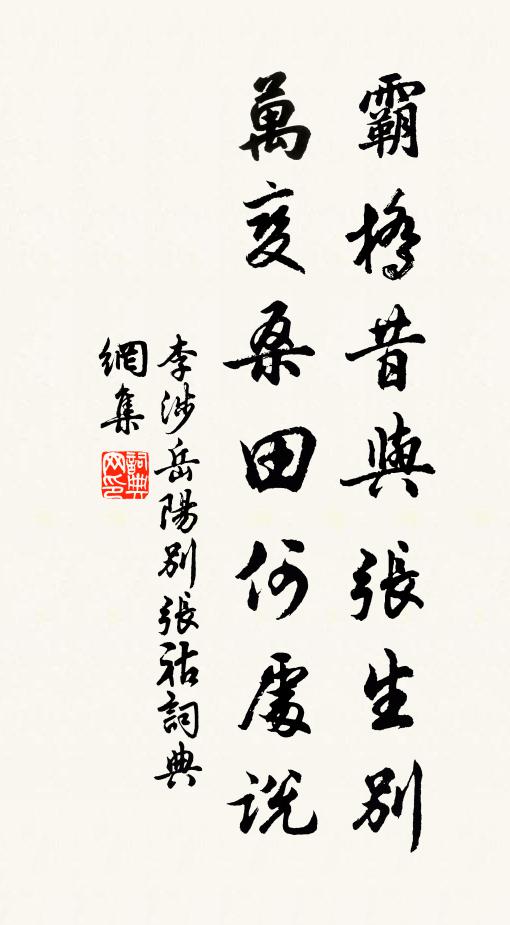 霸橋昔與張生別
萬変桑田何處説
李涉岳陽別張祜詞典
網集
詞典網印